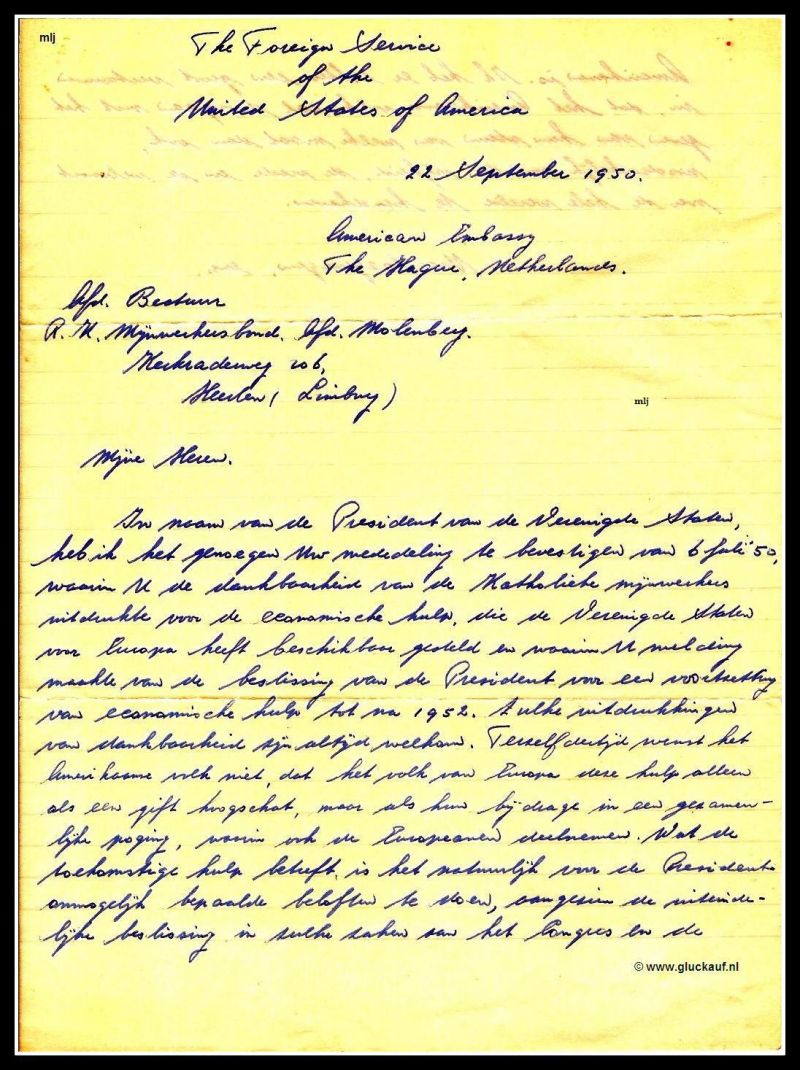 mlj
The Foreign Service
of the
United States of America
22 September 1950.
American Embassy
The Hague, Netherlands.
Afd. Bestuur
R. K. Mijnwerkersbond. Afd. Molenberg.
Kerkraderweg 206,
Heerlen (Limburg)
mlj
Mijne Heren.
In naam van de President van de Verenigde Staten,
heb ik het genoegen Uw mededeling te bevestigen van 6 Juli '50,
waarin U de dankbaarheid van de Katholieke mijnwerkers
uitdrukte voor de economische hulp, die de Verenigde Staten
voor Europa heeft beschikbaar gesteld en waarin U melding
maakte van de beslissing van de President voor een voortzetting
van economische hulp tot na 1952. Zulke uitdrukkingen
van dankbaarheid zijn altijd welkom. Terzelfdertijd wenst het
Amerikaanse volk niet, dat het volk van Europa deze hulp alleen
als een gift hoogschat, maar als hun bijdrage in een gezamen-
lijke poging, waarin ook de Europeanen deelnemen. Wat de
toekomstige hulp betreft is het natuurlijk voor de President
onmogelijk bepaalde beloften te doen, aangezien de uiteinde-
lijke beslissing in zulke zaken aan het Congres en de
© www.gluckauf.nl